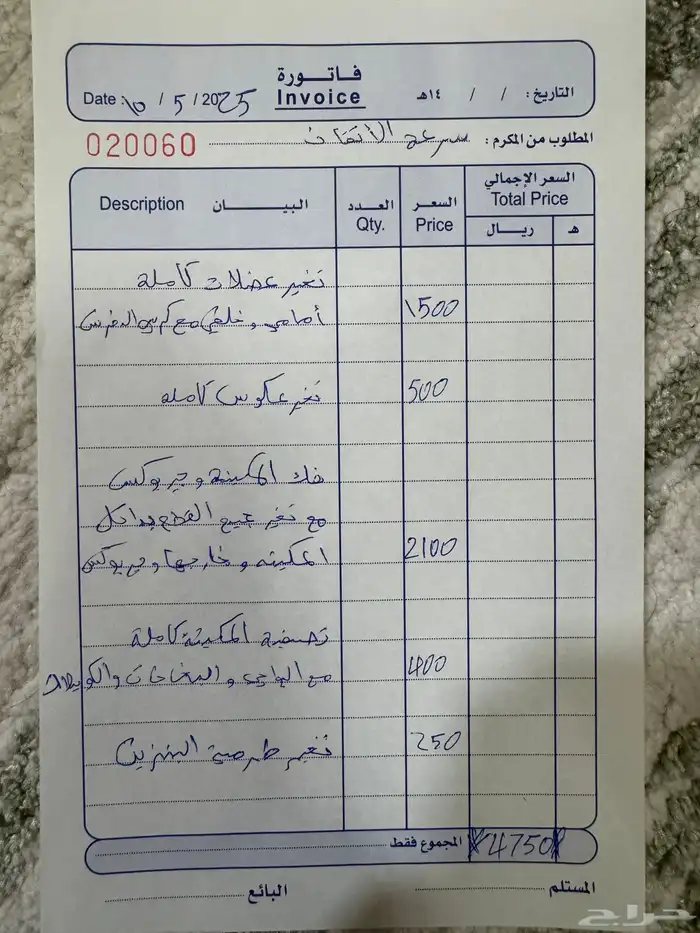 فاتورة
Invoice
Date: 10 / 5 / 2025
التاريخ : / / ١٤هـ
020060
المطلوب من المكرم : سرعة الأتقان
السعر الإجمالي
Total Price
Description البيان
العدد
Qty.
السعر
Price
ريال
هـ
تغير عضلات كاملة
أمامي و خلفي مع كرسي الدفرنس 1500
تغير عكوس كامله 500
فك المكينه و جربوكس
مع تغير جميع القطع بداخل
المكينه و خارجها و جربوكس 2100
تصفية المكينة كاملة
مع البواجي و البخاخات والكويلات 400
تغير طرمبة البنزين 250
المجموع فقط 4750
المستلم
البائع
حراج